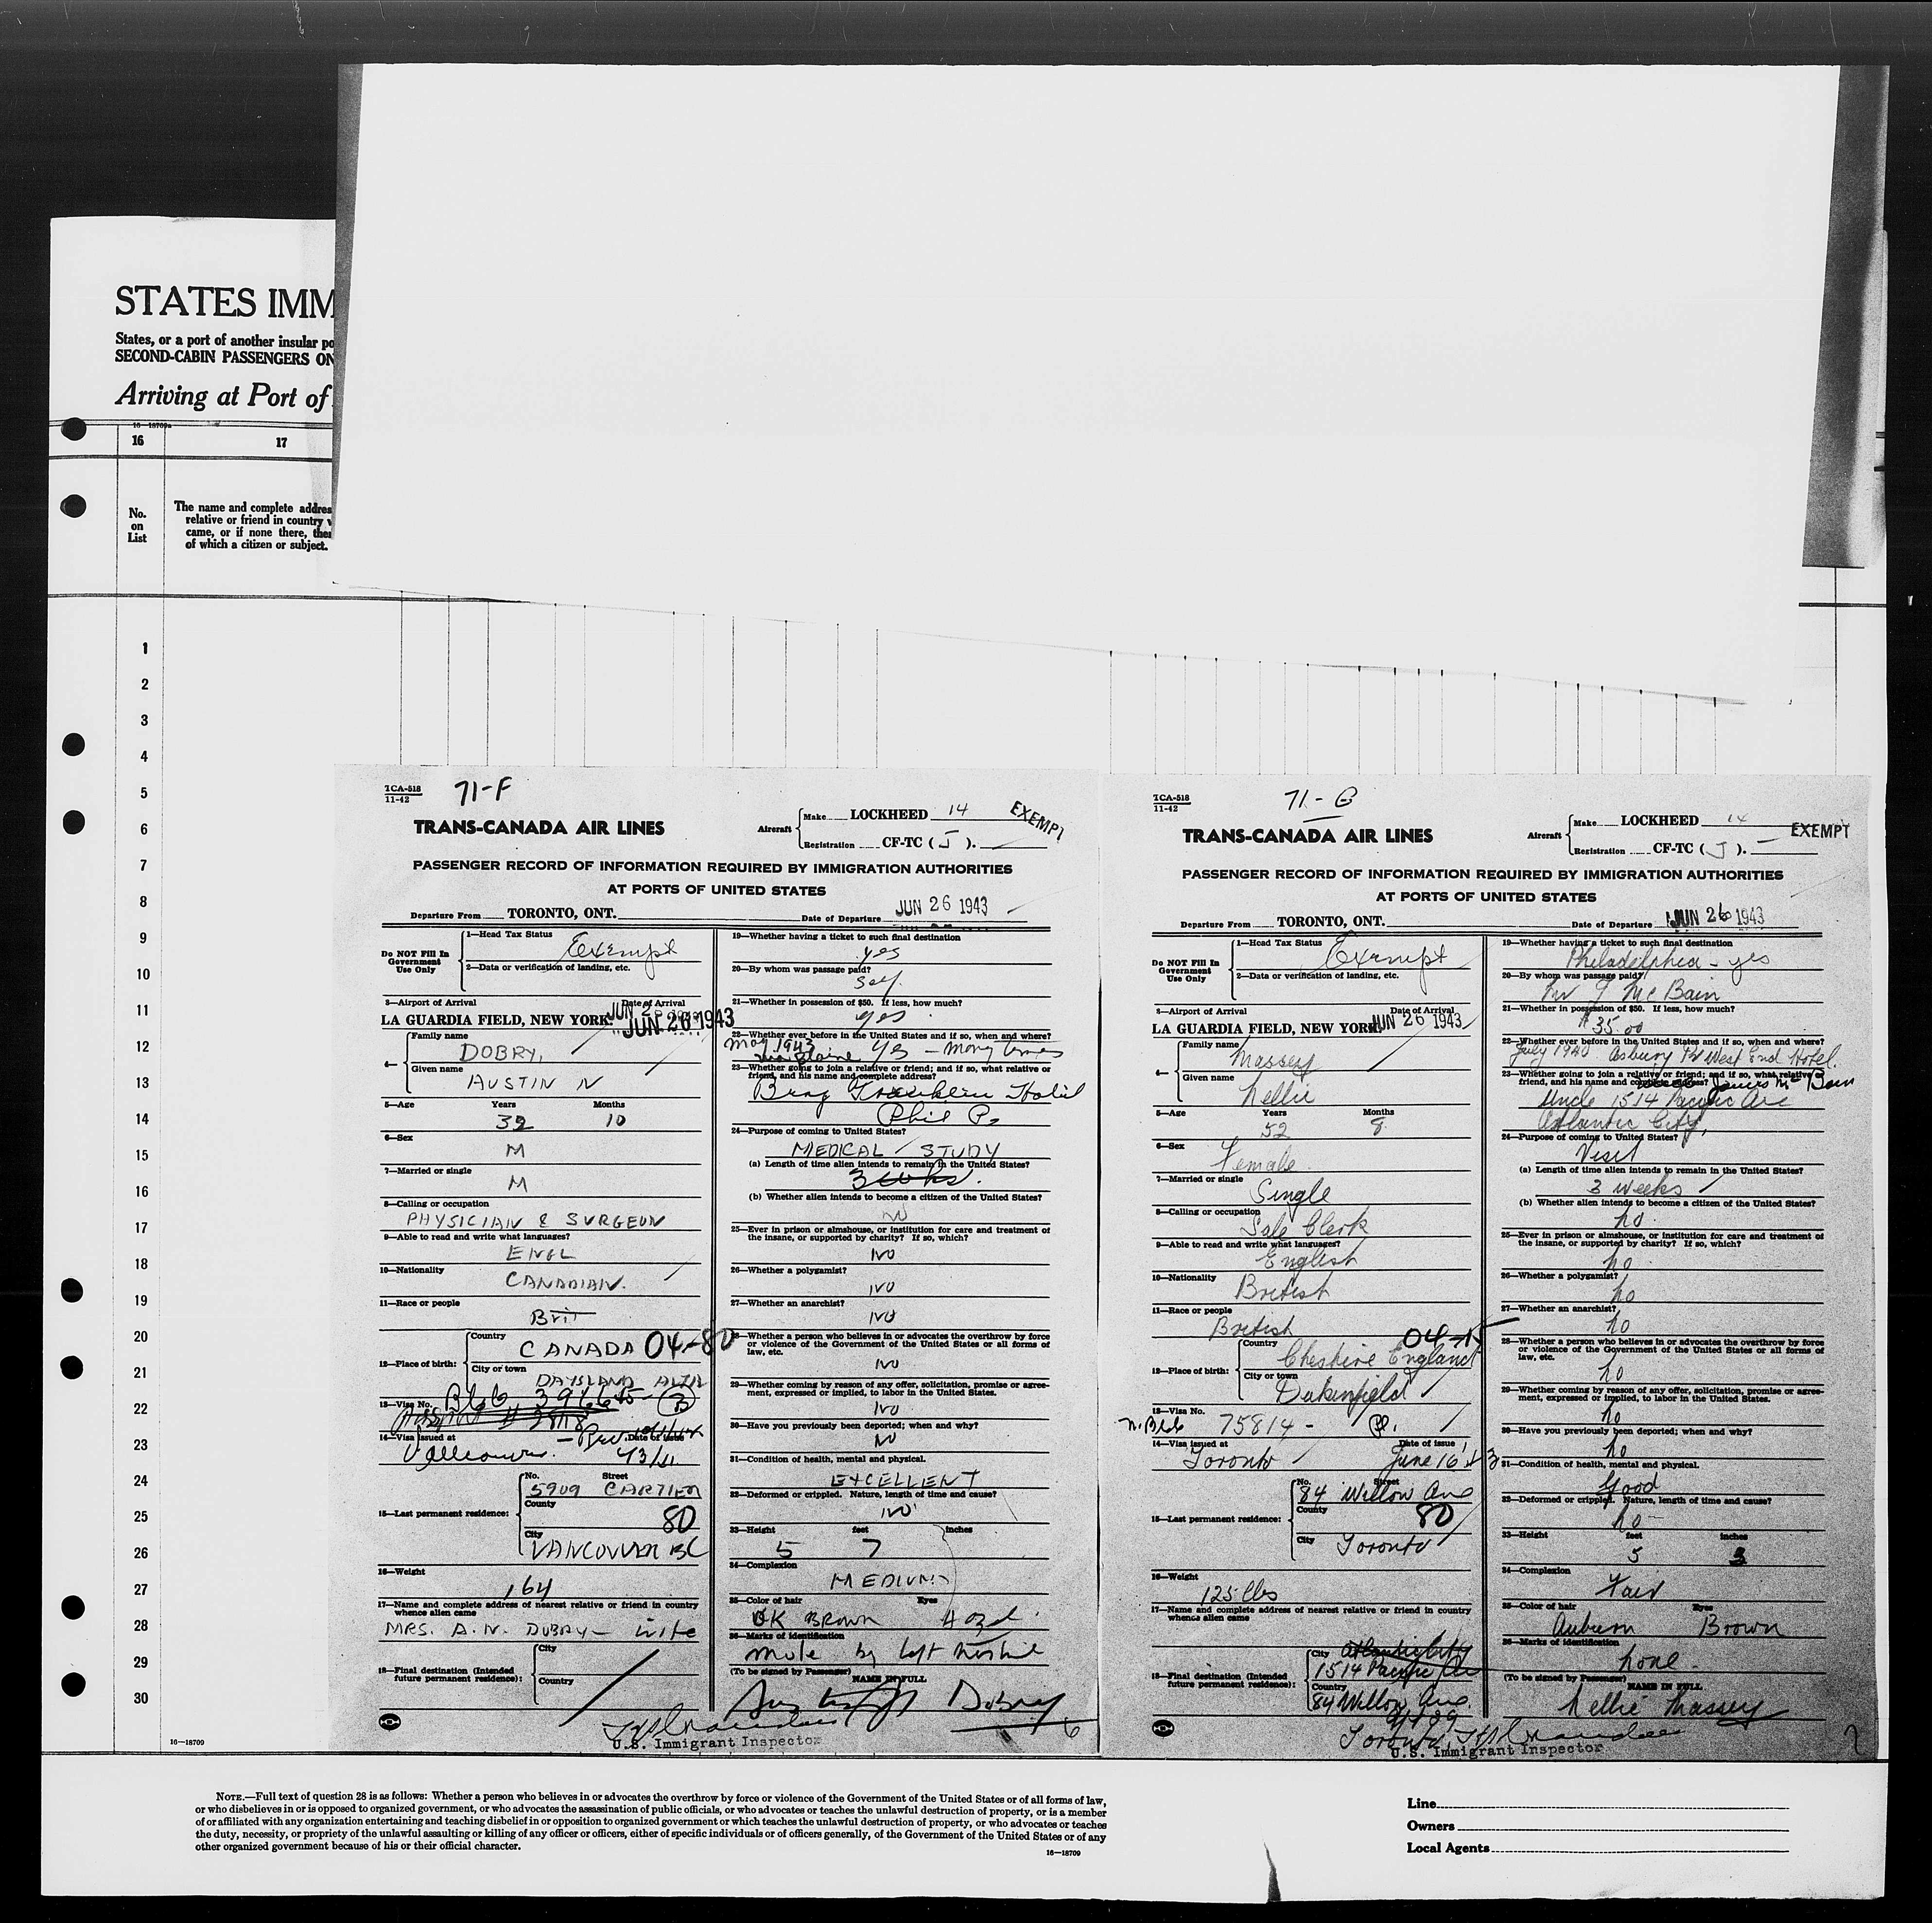 STATES IMM
States, or a port of another insular po
SECOND-CABIN PASSENGERS ON
Arriving at Port of
16—18709a
16
17
No.
on
List
The name and complete addres
relative or friend in country
came, or if none there, then
of which a citizen or subject.
1
2
3
4
5
6
7
8
9
10
11
12
13
14
15
16
17
18
19
20
21
22
23
24
25
26
27
28
29
30
16—18709
TCA-518
11-42
71-F
TRANS-CANADA AIR LINES
Aircraft
Make LOCKHEED 14
EXEMPT
Registration CF-TC (J).
PASSENGER RECORD OF INFORMATION REQUIRED BY IMMIGRATION AUTHORITIES
AT PORTS OF UNITED STATES
Departure From TORONTO, ONT. Date of Departure JUN 26 1943
Do NOT Fill In
Government
Use Only
1—Head Tax Status Exempt
2—Data or verification of landing, etc.
3—Airport of Arrival Date of Arrival
LA GUARDIA FIELD, NEW YORK JUN 26 1943
4—
Family name
DOBRY,
Given name
AUSTIN N
5—Age Years Months
32 10
6—Sex
M
7—Married or single
M
8—Calling or occupation
PHYSICIAN & SURGEON
9—Able to read and write what languages?
ENGL
10—Nationality
CANADIAN.
11—Race or people
Brit
12—Place of birth:
Country
CANADA 04-80
City or town
DAYSLAND ALTA
13—Visa No.
14—Visa issued at Date of issue
Vancouver
15—Last permanent residence:
No. Street
5909 CARTIER
County
80
City
VANCOUVER BC
16—Weight
164
17—Name and complete address of nearest relative or friend in country
whence alien came
MRS. A. N. DOBRY — wife
18—Final destination (Intended
future permanent residence):
City
Country
19—Whether having a ticket to such final destination
yes
20—By whom was passage paid?
Self.
21—Whether in possession of $50. If less, how much?
yes
22—Whether ever before in the United States and if so, when and where?
May 1943 Yes — many times
via Blaine
23—Whether going to join a relative or friend; and if so, what relative or
friend, and his name and complete address?
Benj Franklin Hotel
Phil Pa
24—Purpose of coming to United States?
MEDICAL STUDY
(a) Length of time alien intends to remain in the United States?
3 wks.
(b) Whether alien intends to become a citizen of the United States?
NO
25—Ever in prison or almshouse, or institution for care and treatment of
the insane, or supported by charity? If so, which?
NO
26—Whether a polygamist?
NO
27—Whether an anarchist?
NO
28—Whether a person who believes in or advocates the overthrow by force
or violence of the Government of the United States or all forms of
law, etc.
NO
29—Whether coming by reason of any offer, solicitation, promise or agree-
ment, expressed or implied, to labor in the United States.
NO
30—Have you previously been deported; when and why?
NO
31—Condition of health, mental and physical.
EXCELLENT
32—Deformed or crippled. Nature, length of time and cause?
NO
33—Height feet inches
5 7
34—Complexion
MEDIUM
35—Color of hair Eyes
DK BROWN
36—Marks of identification
Mole by left nostril
(To be signed by Passenger) NAME IN FULL
U.S. Immigrant Inspector
6
TCA-518
11-42
71-G
TRANS-CANADA AIR LINES
Aircraft
Make LOCKHEED 14
EXEMPT
Registration CF-TC (J).
PASSENGER RECORD OF INFORMATION REQUIRED BY IMMIGRATION AUTHORITIES
AT PORTS OF UNITED STATES
Departure From TORONTO, ONT. Date of Departure JUN 26 1943
Do NOT Fill In
Government
Use Only
1—Head Tax Status Exempt
2—Data or verification of landing, etc.
3—Airport of Arrival Date of Arrival
LA GUARDIA FIELD, NEW YORK JUN 26 1943
4—
Family name
Massey
Given name
Nellie
5—Age Years Months
52 8
6—Sex
Female
7—Married or single
Single
8—Calling or occupation
Sale Clerk
9—Able to read and write what languages?
English
10—Nationality
British
11—Race or people
British
04-15
12—Place of birth:
Country
Cheshire England
City or town
Dukinfield
13—Visa No.
75814 —
14—Visa issued at Date of issue
Toronto June 16 43
15—Last permanent residence:
No. Street
84 Willow Ave
County
80
City
Toronto
16—Weight
125 lbs
17—Name and complete address of nearest relative or friend in country
whence alien came
18—Final destination (Intended
future permanent residence):
City Atlantic City
1514 Pacific Ave
Country
84 Willow Ave.
Toronto
19—Whether having a ticket to such final destination
Philadelphia — yes
20—By whom was passage paid?
Mr J McBain
21—Whether in possession of $50. If less, how much?
$35.00
22—Whether ever before in the United States and if so, when and where?
July 1940 Asbury Pk West End Hotel.
23—Whether going to join a relative or friend; and if so, what relative or
friend, and his name and complete address? James McBain
Uncle 1514 Pacific Ave
Atlantic City,
24—Purpose of coming to United States?
Visit
(a) Length of time alien intends to remain in the United States?
3 weeks
(b) Whether alien intends to become a citizen of the United States?
no.
25—Ever in prison or almshouse, or institution for care and treatment of
the insane, or supported by charity? If so, which?
no
26—Whether a polygamist?
no
27—Whether an anarchist?
no
28—Whether a person who believes in or advocates the overthrow by force
or violence of the Government of the United States or all forms of
law, etc.
no
29—Whether coming by reason of any offer, solicitation, promise or agree-
ment, expressed or implied, to labor in the United States.
no
30—Have you previously been deported; when and why?
no
31—Condition of health, mental and physical.
Good
32—Deformed or crippled. Nature, length of time and cause?
no
33—Height feet inches
5 3
34—Complexion
Fair
35—Color of hair Eyes
Auburn Brown
36—Marks of identification
none.
(To be signed by Passenger) NAME IN FULL
Nellie Massey
U.S. Immigrant Inspector
7
NOTE.—Full text of question 28 is as follows: Whether a person who believes in or advocates the overthrow by force or violence of the Government of the United States or of all forms of law,
or who disbelieves in or is opposed to organized government, or who advocates the assassination of public officials, or who advocates or teaches the unlawful destruction of property, or is a member
of or affiliated with any organization entertaining and teaching disbelief in or opposition to organized government or which teaches the unlawful destruction of property, or who advocates or teaches
the duty, necessity, or propriety of the unlawful assaulting or killing of any officer or officers, either of specific individuals or of officers generally, of the Government of the United States or of any
other organized government because of his or their official character.
16—18709
Line
Owners
Local Agents